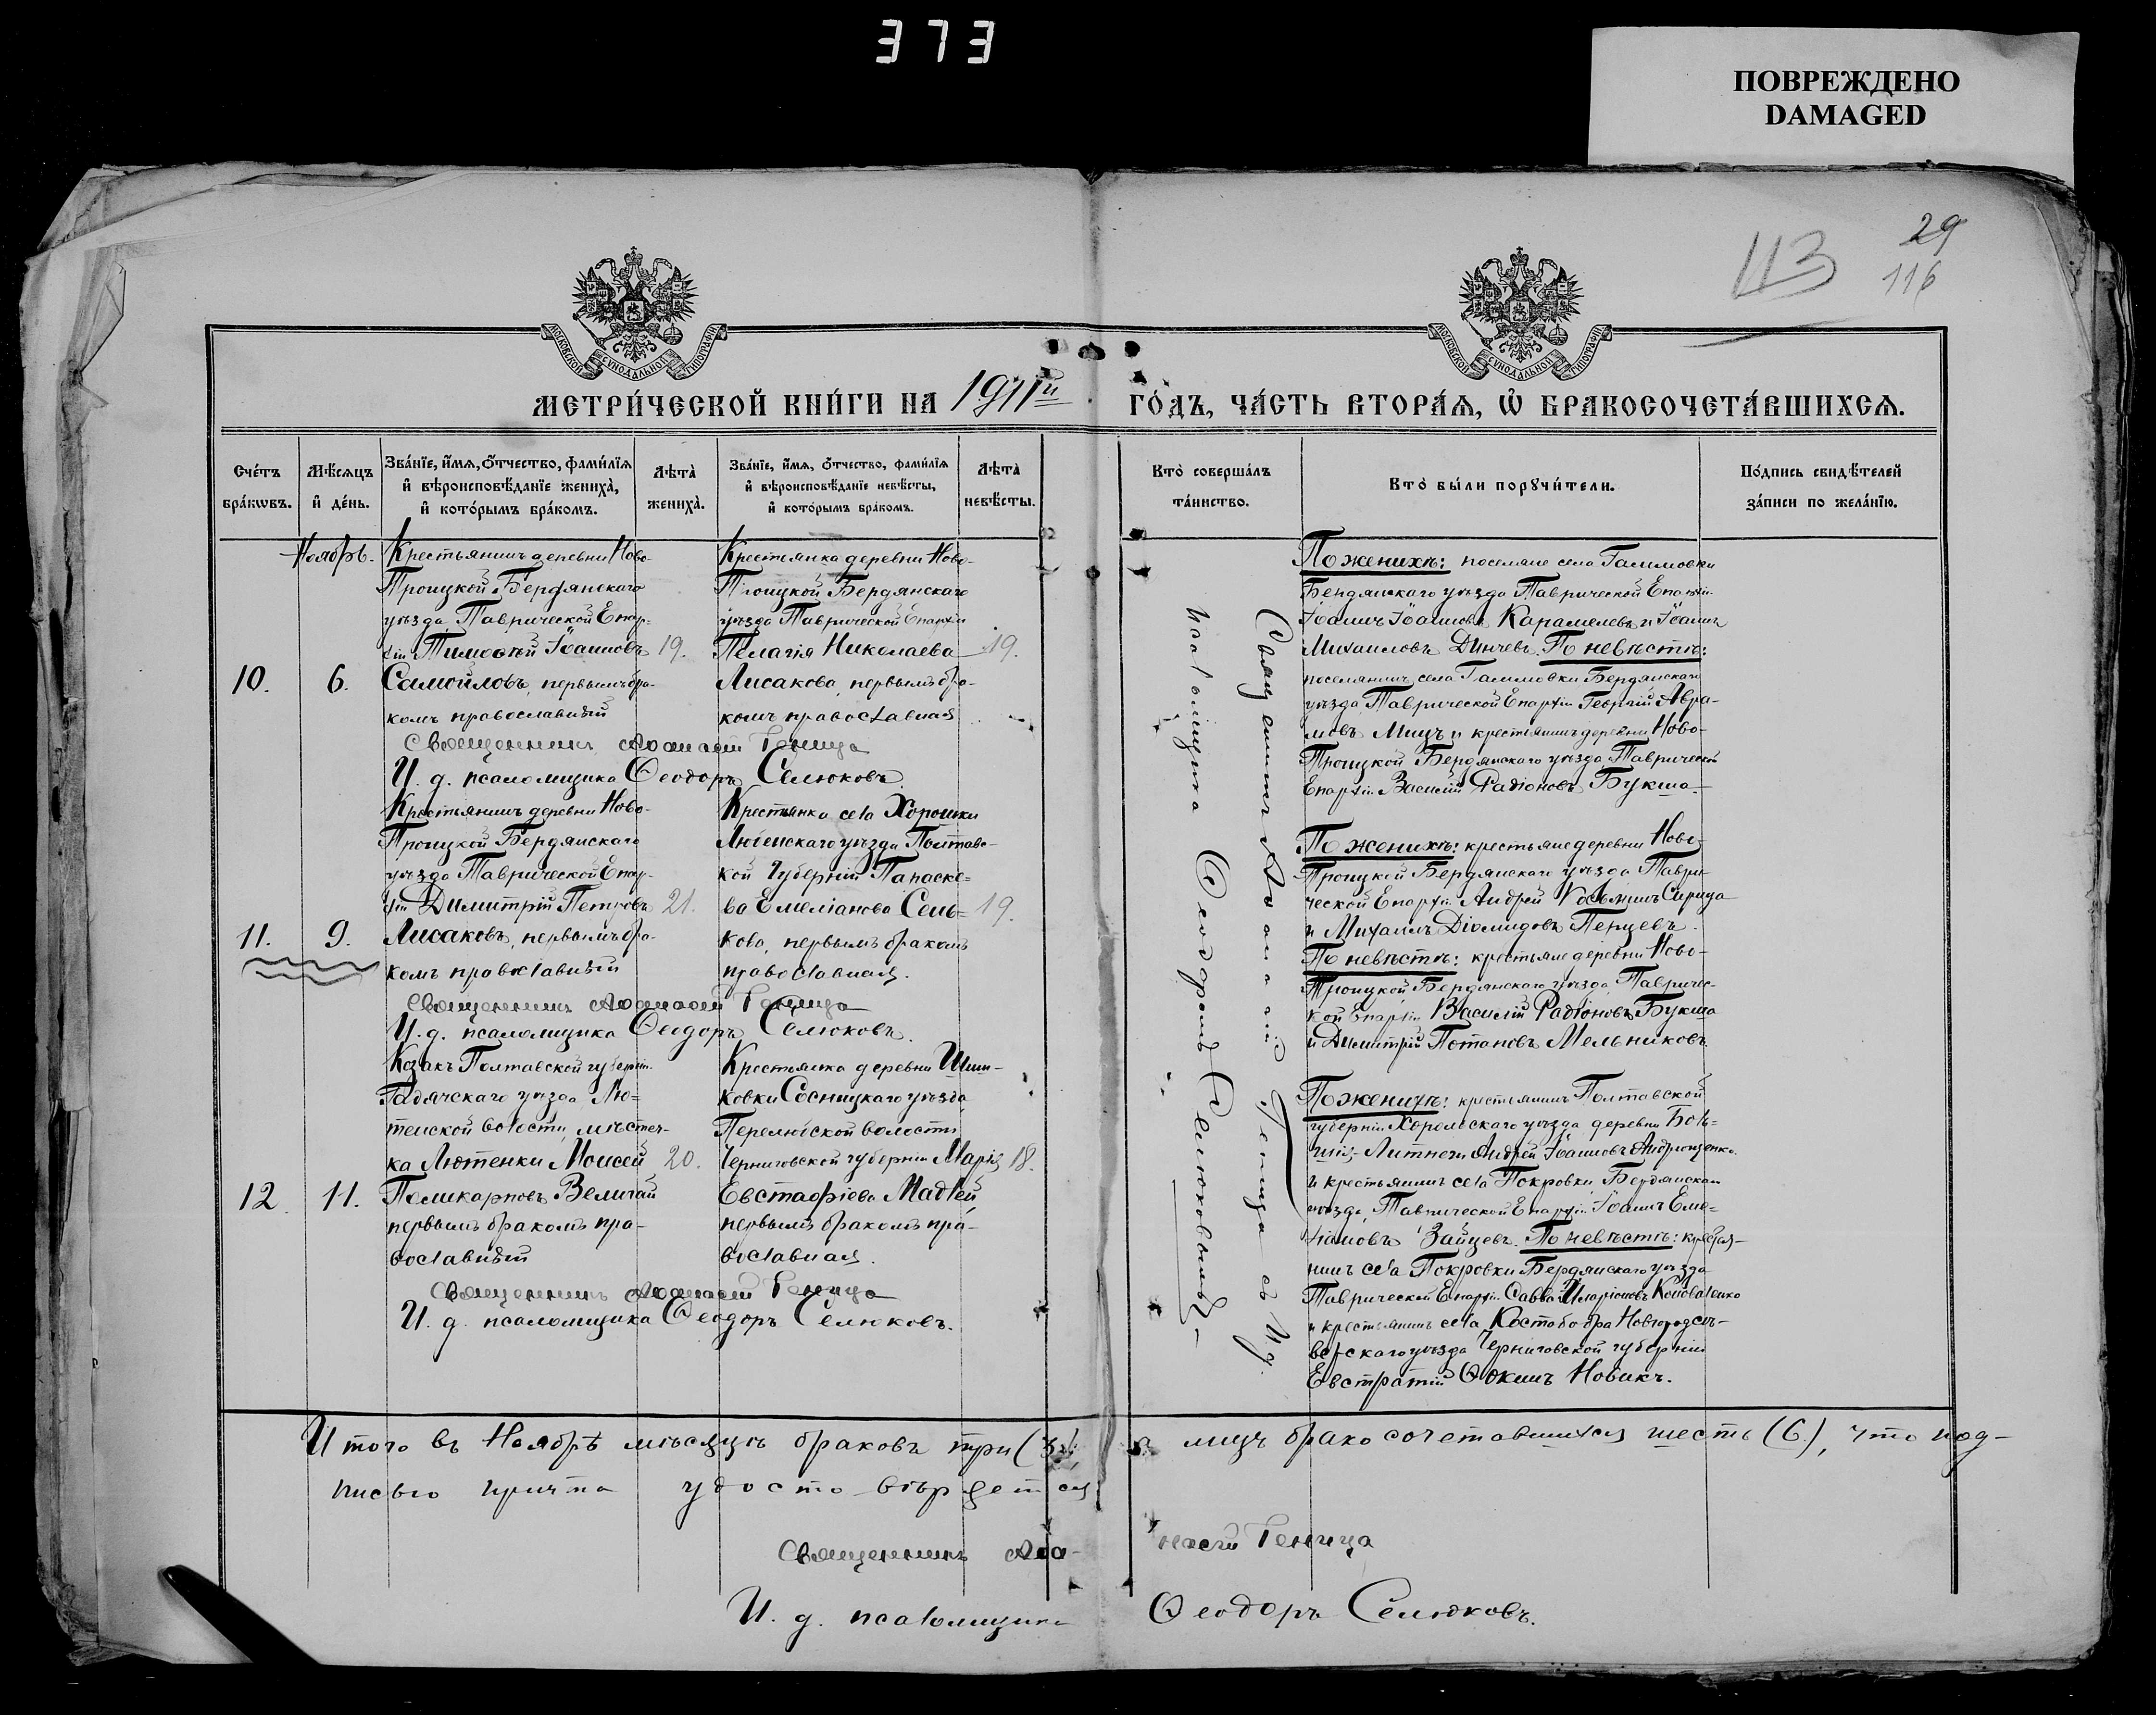 373
ПОВРЕЖДЕНО
DAMAGED
29
113
116
МОСКОВСКОЙ СѴНОДАЛЬНОЙ ТИПОГРАФІИ
МОСКОВСКОЙ СѴНОДАЛЬНОЙ ТИПОГРАФІИ
МЕТРИ́ЧЕСКОЙ КНИ́ГИ НА 1911й ГО́ДЪ, ЧА́СТЬ ВТОРА́Я, Ѡ҆ БРАКОСОЧЕТА́ВШИХСЯ.
Сче́тъ бра́кѡвъ.
Мѣ́сяцъ и҆ де́нь.
Зва́нїе, и҆́мя, ѻ҆́тчество, фами́лїя и҆ вѣроисповѣ́данїе жениха̀, и҆ кото́рымъ бра́комъ.
Лѣта̀ жениха̀.
Зва́нїе, и҆́мя, ѻ҆́тчество, фами́лїя и҆ вѣроисповѣ́данїе невѣ́сты, и҆ кото́рымъ бра́комъ.
Лѣта̀ невѣ́сты.
Кто̀ соверша́лъ та́инство.
Кто̀ бы́ли порꙋчи́тели.
По́дпись свидѣ́телей за́писи по жела́нїю.
Ноябрь.
10.
6.
Крестьянинъ деревни Ново-
Троицкой Бердянскаго
уѣзда Таврической Епар-
хіи Тимоѳей Іоанновъ
Самойловъ, первымъ бра-
комъ православный
19.
Крестьянка деревни Ново-
Троицкой Бердянскаго
уѣзда Таврической Епархіи
Пелагія Николаева
Лисакова, первымъ бра-
комъ православная
19.
Священникъ Аѳанасій Геница
И. д. псаломщика Ѳеодоръ Селюковъ
По женихѣ: поселяне села Галимовки
Бердянскаго уѣзда Таврической Епархіи
Іоаннъ Іоанновъ Карамелевъ и Іоаннъ
Михаиловъ Динчевъ. По невѣстѣ:
поселянинъ села Галимовки Бердянскаго
уѣзда Таврической Епархіи Георгій Авра-
мовъ Мицъ и крестьянинъ деревни Ново-
Троицкой Бердянскаго уѣзда Таврической
Епархіи Василій Радіоновъ Букша
11.
9.
Крестьянинъ деревни Ново-
Троицкой Бердянскаго
уѣзда Таврической Епар-
хіи Димитрій Петровъ
Лисаковъ, первымъ бра-
комъ православный
21.
Крестьянка села Хорошки
Лубенскаго уѣзда Полтавс-
кой Губерніи Параске-
ва Емеліанова Сень-
кова, первымъ бракомъ
православная.
19.
Священникъ Аѳанасій Геница
И. д. псаломщика Ѳеодоръ Селюковъ.
По женихѣ: крестьяне деревни Ново-
Троицкой Бердянскаго уѣзда Таври-
ческой Епархіи Андрей Косьминъ Сирица
и Михаилъ Діомидовъ Перцевъ.
По невѣстѣ: крестьяне деревни Ново-
Троицкой Бердянскаго уѣзда Тавричес-
кой Епархіи Василій Радіоновъ Букша
и Димитрій Потаповъ Мельниковъ.
12.
11.
Козакъ Полтавской губерніи
Гадячскаго уѣзда Лю-
тенской волости, мѣстеч-
ка Лютенки Моисей
Поликарповъ Величай
первымъ бракомъ пра-
вославный
20.
Крестьянка деревни Шиш-
ковки Сосницкаго уѣзда
Перелюбской волости
Черниговской губерніи Марія
Евстафіева Мадѣй,
первымъ бракомъ пра-
вославная.
18.
Священникъ Аѳанасій Геница
И. д. псаломщика Ѳеодоръ Селюковъ.
По женихѣ: крестьянинъ Полтавской
губерніи Хорольскаго уѣзда деревни Боль-
шія-Липняги Андрей Іоанновъ Андрющенко
и крестьянинъ села Покровки Бердянскаго
уѣзда Таврической Епархіи Іоаннъ Еме-
ліановъ Зайцевъ. По невѣстѣ: крестья-
нинъ села Покровки Бердянскаго уѣзда
Таврической Епархіи Савва Иларіоновъ Коноваленко
и крестьянинъ села Костобобра Новгородсѣ-
верскаго уѣзда Черниговской губерніи
Евстратій Ѳокинъ Новикъ.
Священникъ Аѳанасій Геница съ И. д.
псаломщика Ѳеодоромъ Селюковымъ.
Итого въ Ноябрѣ мѣсяцѣ браковъ три (3), а лицъ бракосочетавшихся шесть (6), что под-
писью причта удостовѣряется
Священникъ Аѳанасій Геница
И. д. псаломщика Ѳеодоръ Селюковъ.